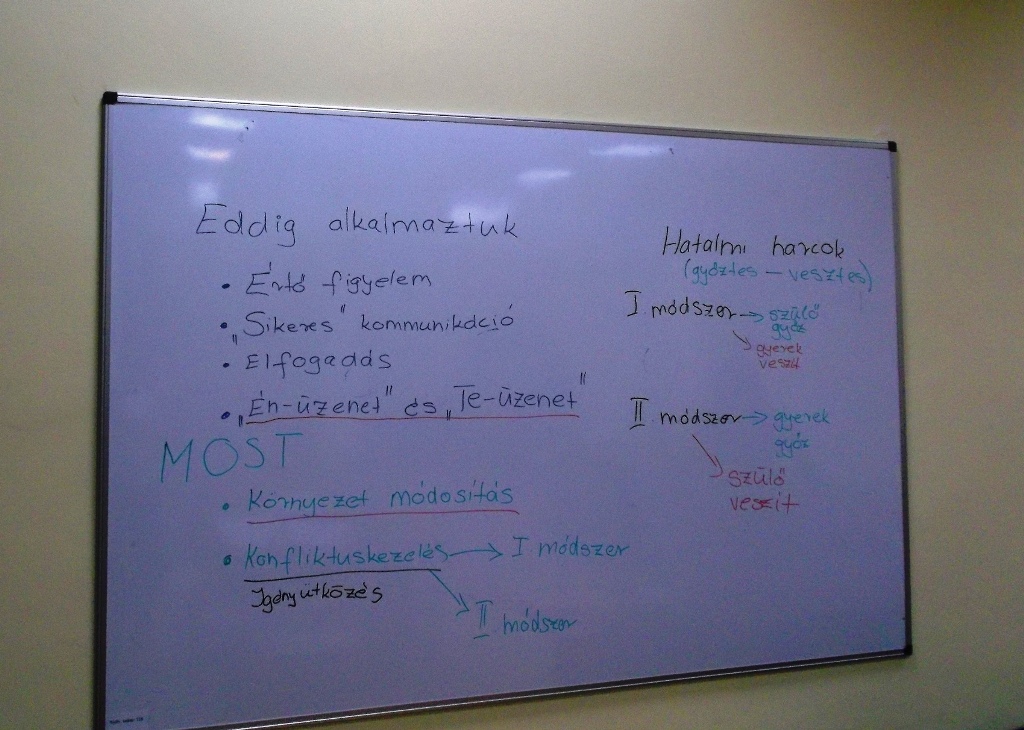 Eddig alkalmaztuk
• Értő figyelem
• „Sikeres" kommunikáció
• Elfogadás
• „Én-üzenet" és „Te-üzenet"
MOST
• Környezet módosítás
• Konfliktuskezelés → I módszer
Igény ütközés
II módszer
Hatalmi harcok
(győztes – vesztes)
I módszer → szülő
győz
gyerek
veszít
II módszer → gyerek
győz
szülő
veszít